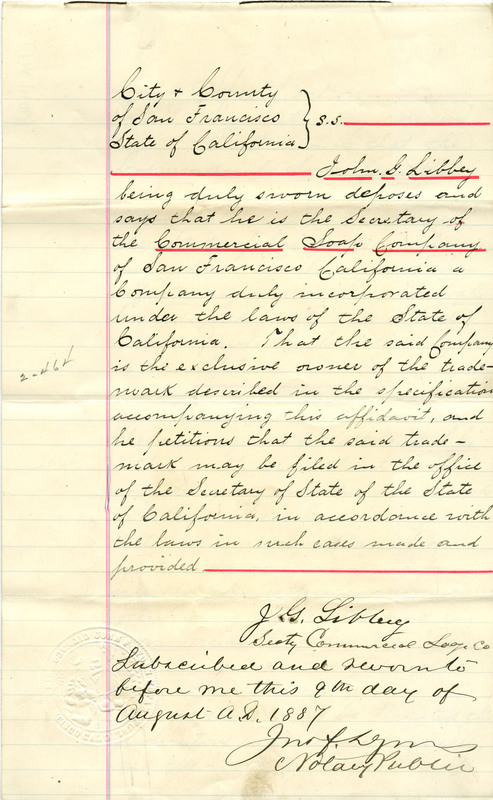 City & County
of San Francisco } s.s.
State of California
John. G. Libbey
being duly sworn deposes and
says that he is the Secretary of
the Commercial Soap Company
of San Francisco California a
Company duly incorporated
under the laws of the State of
California. That the said Company
is the exclusive owner of the trade-
mark described in the specification
accompanying this affidavit, and
he petitions that the said trade-
mark may be filed in the office
of the Secretary of State of the State
of California, in accordance with
the laws in such cases made and
provided
2464
J. G. Libbey
Secty Commercial Soap Co
Subscribed and sworn to
before me this 9th day of
August A.D. 1887
Notary Public